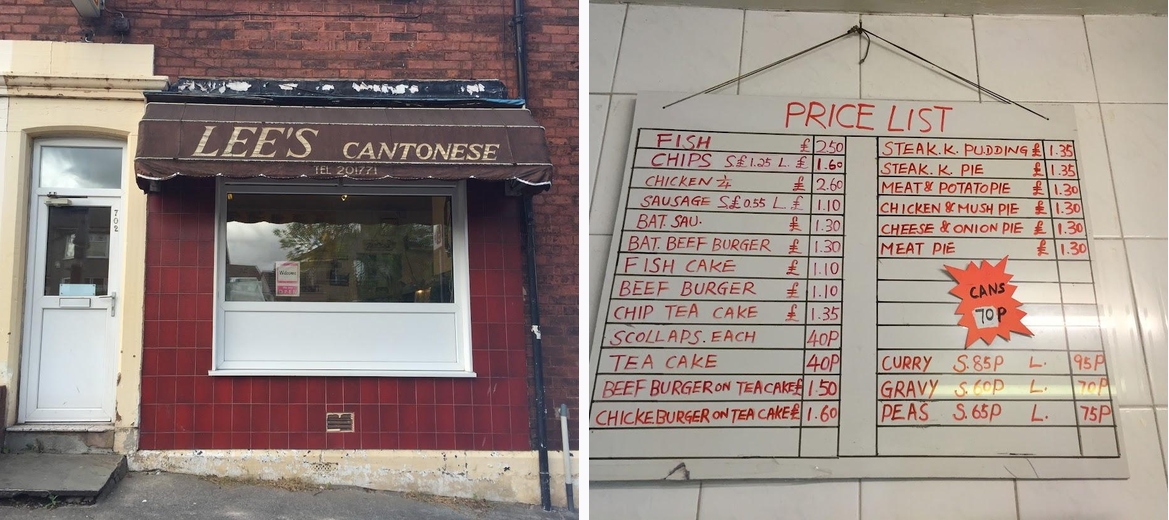 LEE'S CANTONESE
TEL 201771
702
Welcome
PRICE LIST
FISH £ 2.50
CHIPS S £1.25 L. £ 1.60
CHICKEN ¼ £ 2.60
SAUSAGE S £0.55 L £ 1.10
BAT. SAU. £ 1.30
BAT. BEEF BURGER £ 1.30
FISH CAKE £ 1.10
BEEF BURGER £ 1.10
CHIP TEA CAKE £ 1.35
SCOLLAPS. EACH 40P
TEA CAKE 40P
BEEF BURGER ON TEA CAKE £ 1.50
CHICKEBURGER ON TEA CAKE £ 1.60
STEAK. K. PUDDING £ 1.35
STEAK. K. PIE £ 1.35
MEAT & POTATO PIE £ 1.30
CHICKEN & MUSH PIE £ 1.30
CHEESE & ONION PIE £ 1.30
MEAT PIE £ 1.30
CANS
70P
CURRY S. 85P L. 95P
GRAVY S. 60P L. 70P
PEAS S. 65P L. 75P